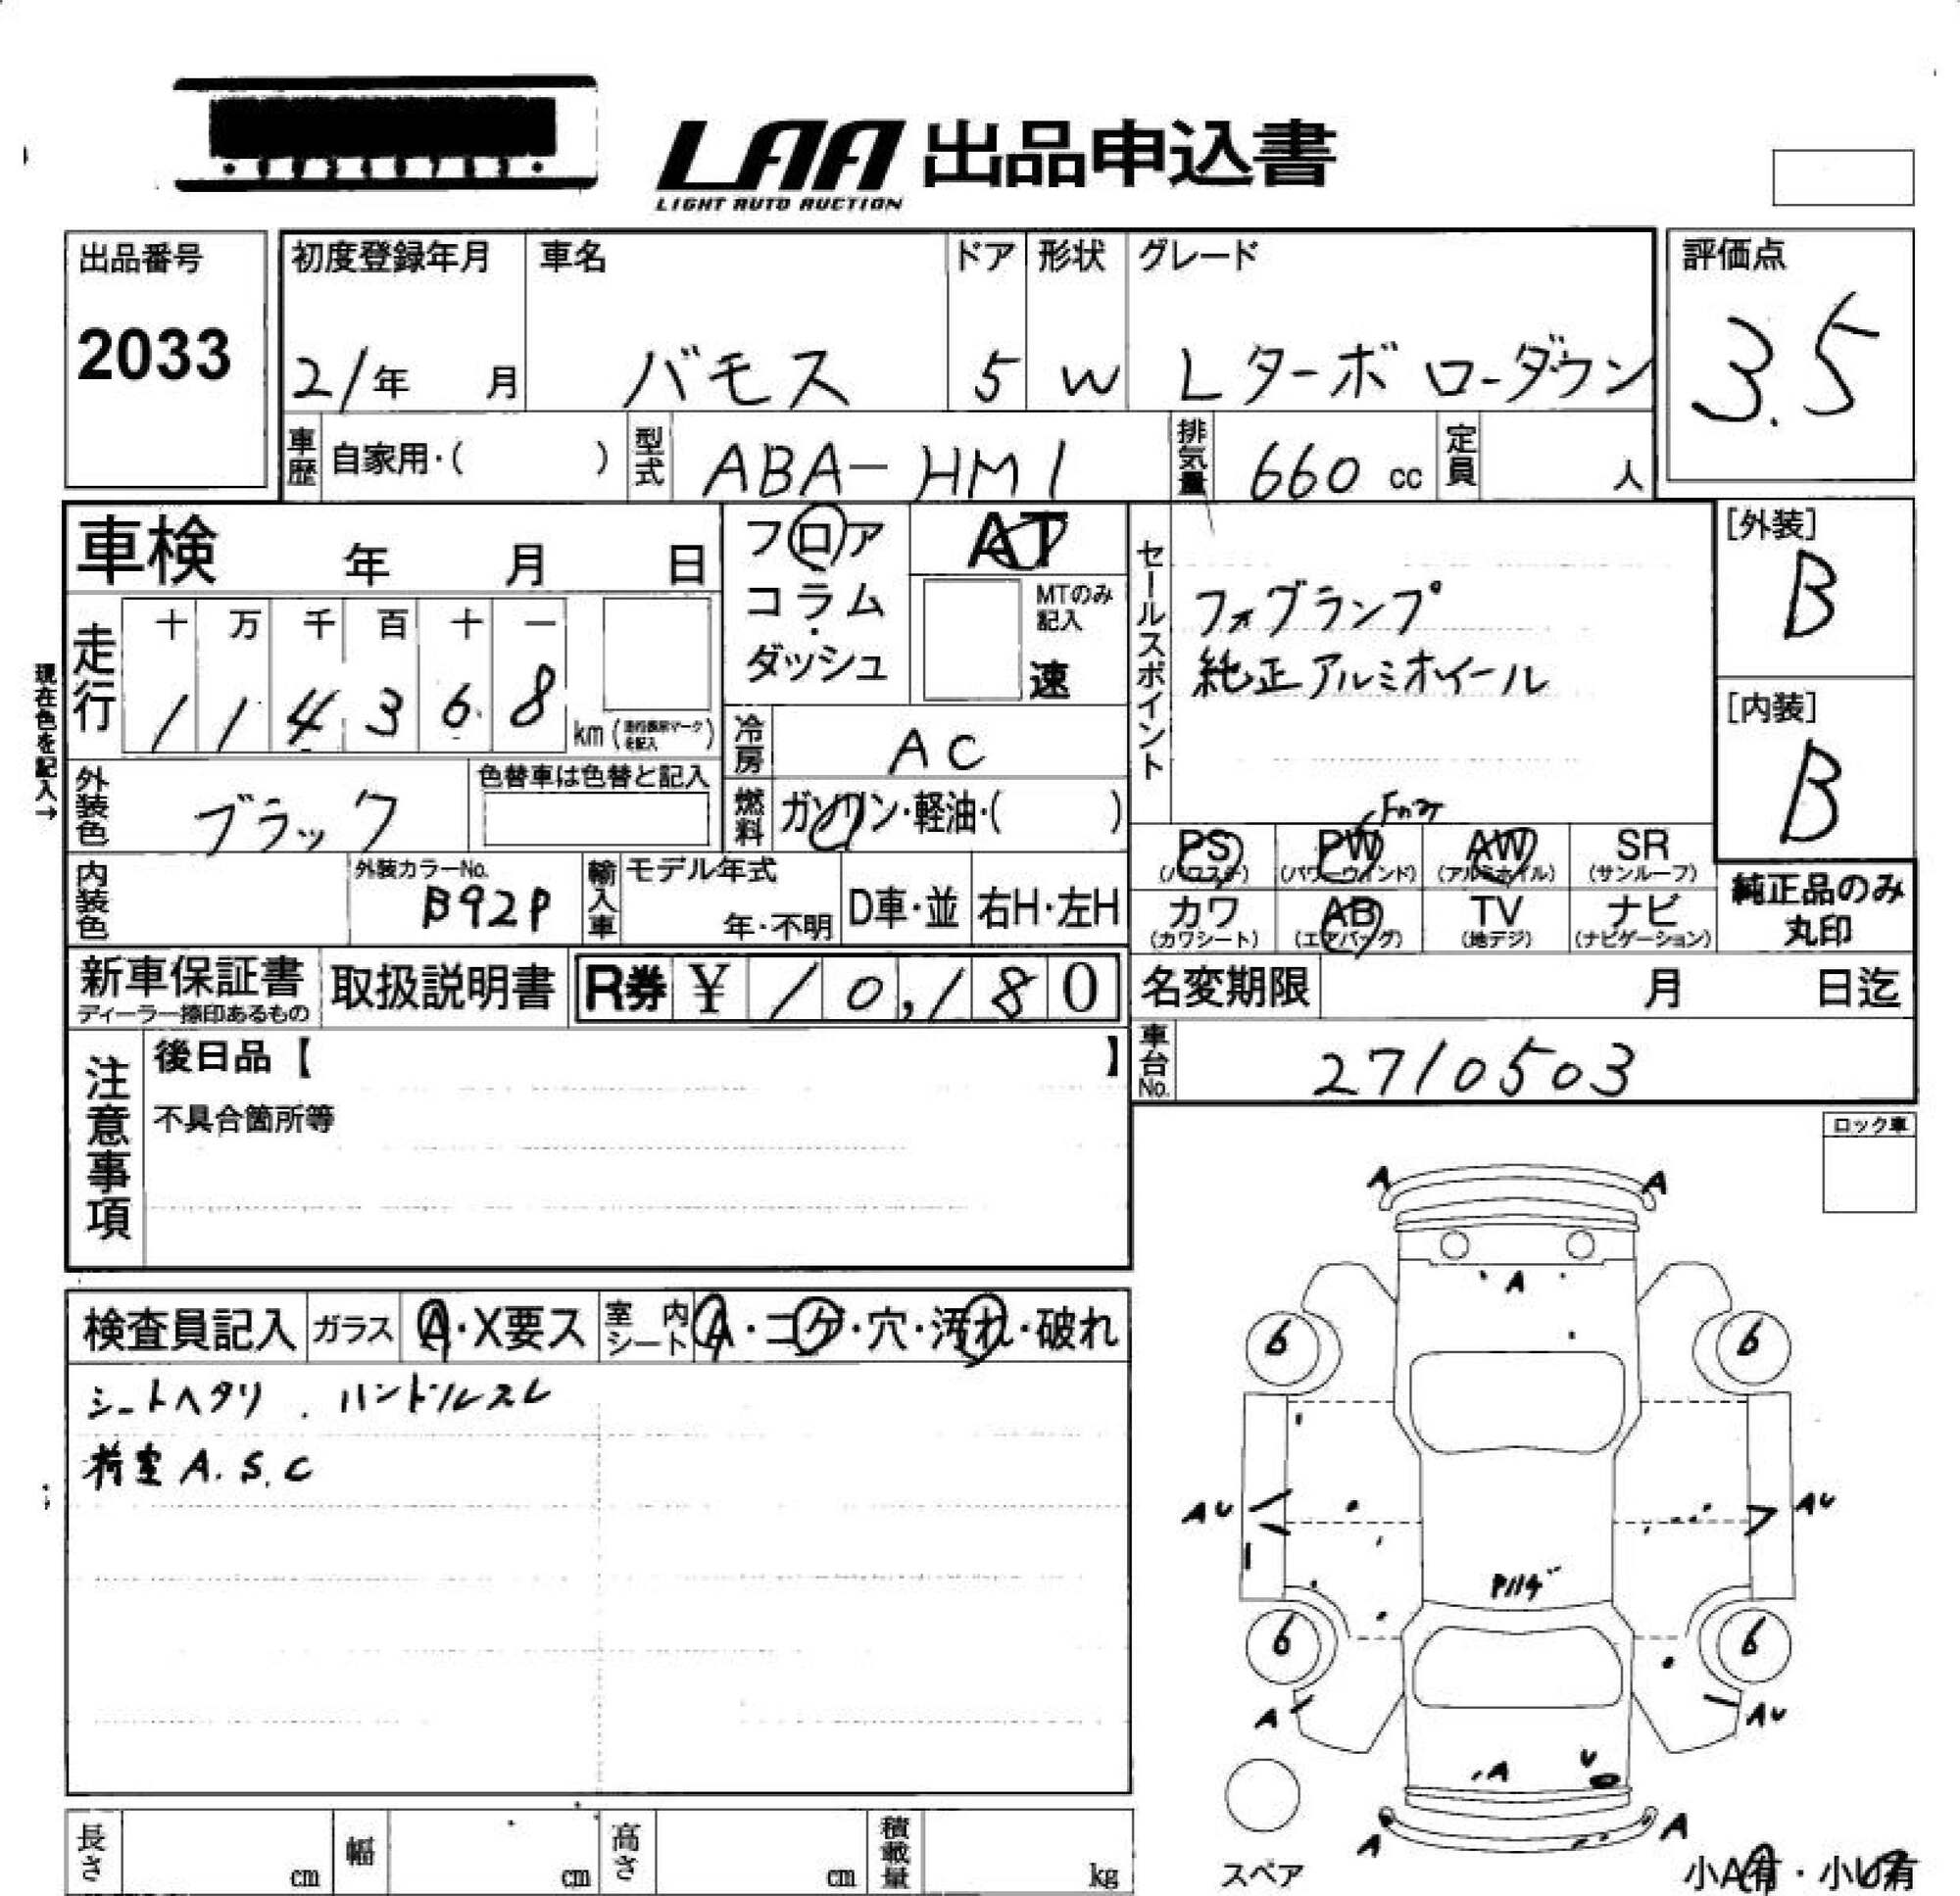 LAA 出品申込書
LIGHT AUTO AUCTION
出品番号
2033
初度登録年月 車名 ドア 形状 グレード
21年 月 バモス 5 W Lターボ ローダウン
評価点
3.5
車歴 自家用・( ) 型式 ABA-HM1 排気量 660 cc 定員 人
車検 年 月 日
フロア
コラム
・
ダッシュ
AT
MTのみ
記入
速
セールスポイント
フォグランプ
純正アルミホイール
[外装]
B
[内装]
B
現在色を記入→
走行
十 万 千 百 十 一
1 1 4 3 6 8 km
冷房 AC
外装色 ブラック
色替車は色替と記入
燃料 ガソリン・軽油・( )
PS PW AW SR
(パワステ) (パワーウィンド) (アルミホイル) (サンルーフ)
カワ AB TV ナビ
(カワシート) (エアバッグ) (地デジ) (ナビゲーション)
純正品のみ
丸印
内装色
外装カラーNo.
B92P
輸入車
モデル年式
年・不明
D車・並
右H・左H
新車保証書
ディーラー捺印あるもの
取扱説明書
R券 ¥ 10,180
名変期限 月 日迄
車台No. 2710503
注意事項
後日品【 】
不具合箇所等
ロック車
検査員記入 ガラス A・X要ス 室内シート A・コゲ・穴・汚れ・破れ
シートヘタリ . ハンドルスレ
荷室 A.S.C
A A
A
6 6
AU AU
6 6
A AU
A U
A A
スペア
小A有・小U有
長さ cm 幅 cm 高さ cm 積載量 kg